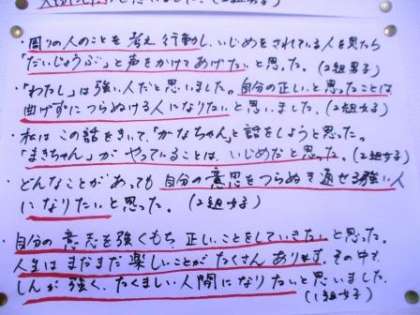 ・周りの人のことを考え行動し、いじめをされている人を見たら
「だいじょうぶ」と声をかけてあげたいと思った。(2組男子)
・「わたし」は強い人だと思いました。自分の正しいと思ったことは
曲げずにつらぬける人になりたいと思いました。(2組女子)
・私はこの話をきいて、「かなちゃん」と話をしようと思った。
「まきちゃん」がやっていることは、いじめだと思った。(2組女子)
・どんなことがあっても自分の意思をつらぬき通せる強い人
になりたいと思った。(2組女子)
・自分の意志を強くもち正しいことをしていきたいと思った。
人生はまだまだ楽しいことがたくさんあります。その中で、
しんが強く、たくましい人間になりたいと思いました。
(1組女子)